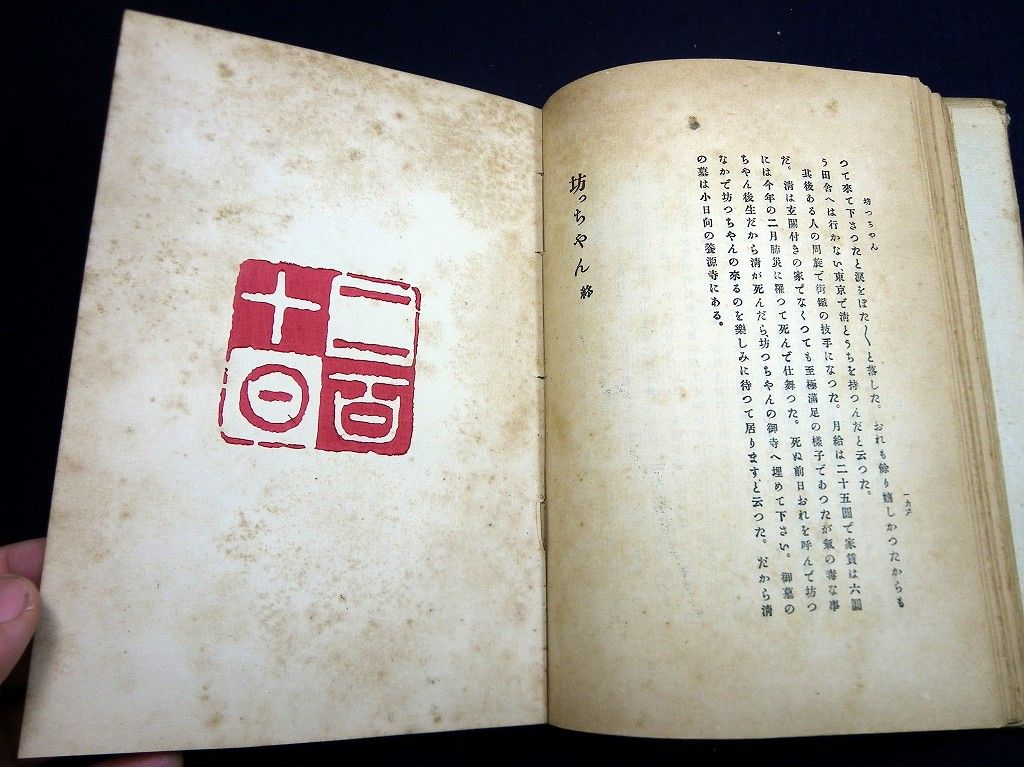 坊つちやん
一九六
つて來て下さつたと淚をぽた〱と落した。おれも餘り嬉しかつたからも
う田舍へは行かない、東京で淸とうちを持つんだと云つた。
其後ある人の周旋で街鐵の技手になつた。月給は二十五圓で家賃は六圓
だ。淸は玄關付きの家でなくつても至極滿足の樣子であつたが氣の毒な事
には今年の二月肺炎に罹つて死んで仕舞つた。死ぬ前日おれを呼んで坊つ
ちやん後生だから淸が死んだら、坊つちやんの御寺へ埋めて下さい。御墓の
なかで坊つちやんの來るのを樂しみに待つて居りますと云つた。だから淸
の墓は小日向の養源寺にある。
坊っちやん 終
二百
十日